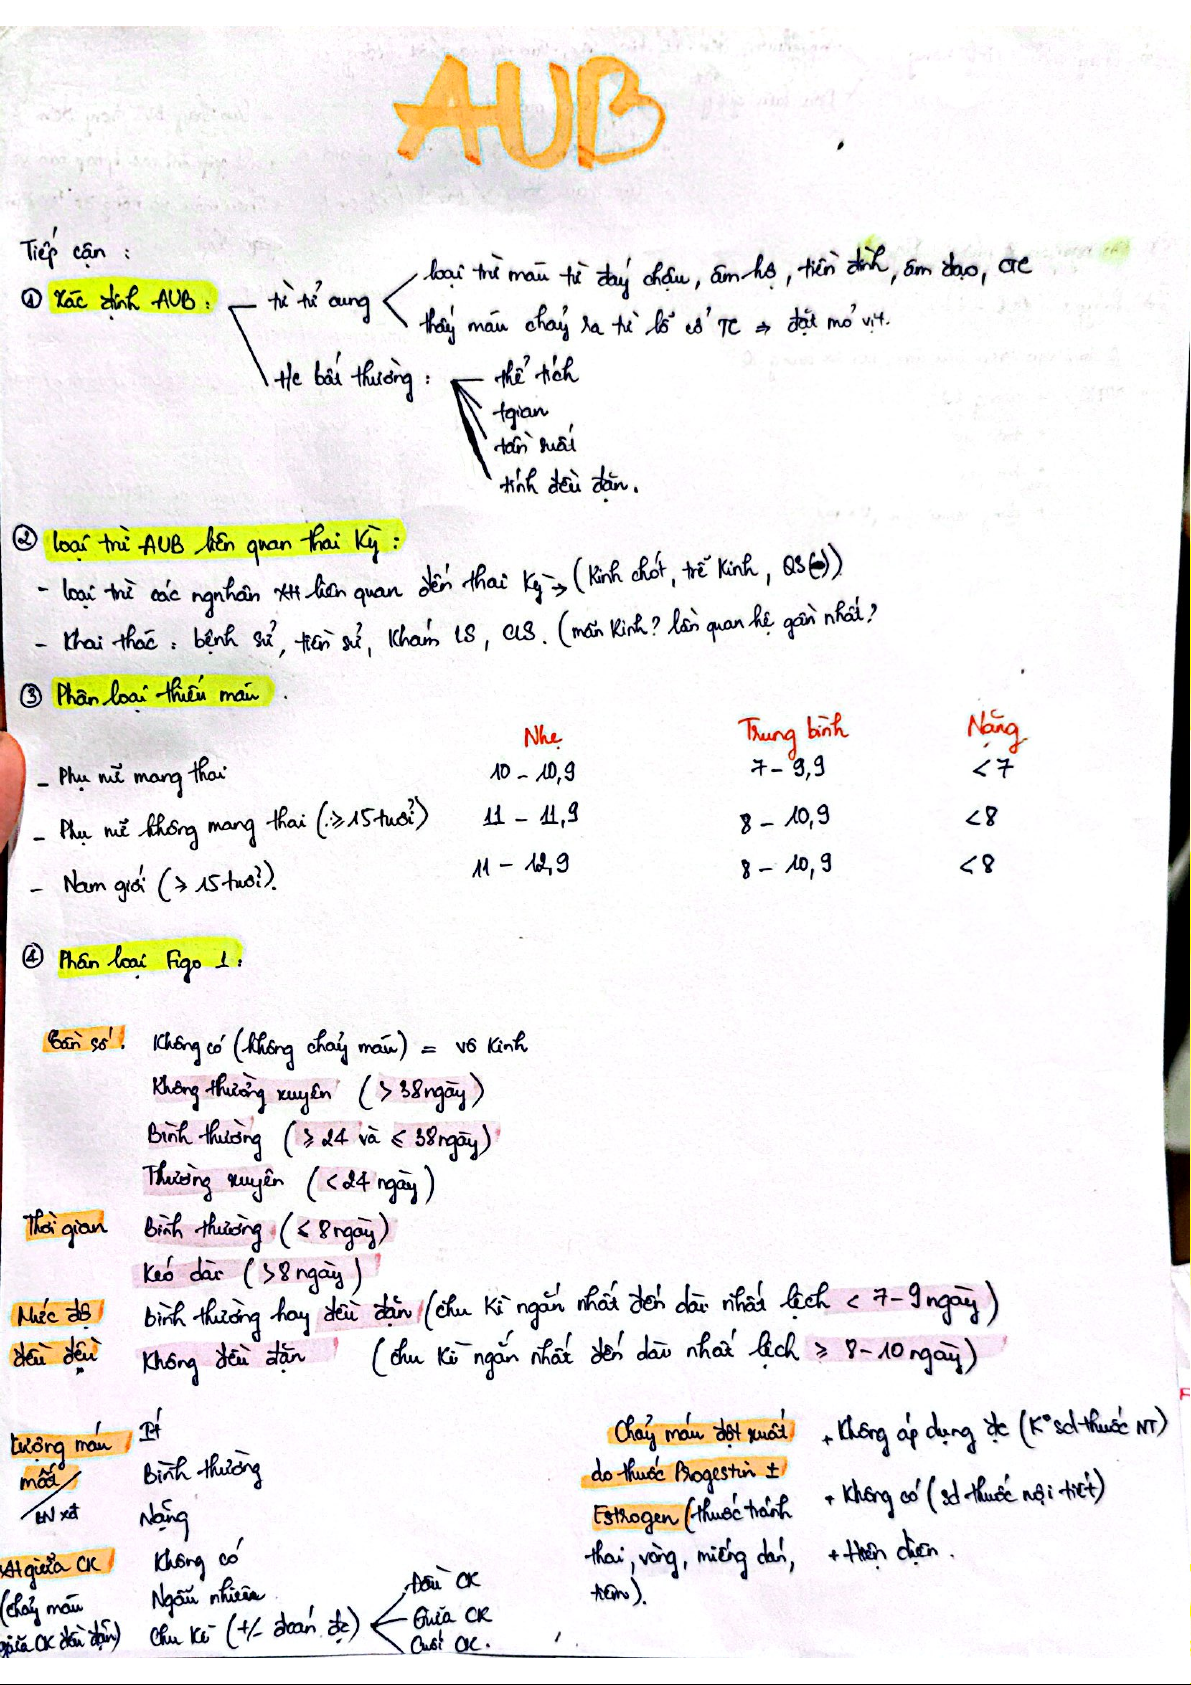 AUB
Tiếp cận :
① Xác định AUB :
từ tử cung
loại trừ máu từ đáy chậu, âm hộ, tiền đình, âm đạo, CTC
thấy máu chảy ra từ lỗ cổ TC ⇒ đặt mỏ vịt.
HC bất thường :
thể tích
tgian
tần suất
tính đều đặn.
② loại trừ AUB liên quan thai kỳ :
- loại trừ các ngnhân XH liên quan đến thai kỳ → (Kinh chót, trễ Kinh, QS(-))
- Khai thác : bệnh sử, tiền sử, Khám LS, CLS. (mãn Kinh? lần quan hệ gần nhất?
③ Phân loại thiếu máu .
Nhẹ Trung bình Nặng
- Phụ nữ mang thai 10 - 10,9 7 - 9,9 < 7
- Phụ nữ không mang thai (≥ 15 tuổi) 11 - 11,9 8 - 10,9 < 8
- Nam giới (≥ 15 tuổi). 11 - 12,9 8 - 10,9 < 8
④ Phân loại Figo 1 :
Tần số : Không có (không chảy máu) = vô Kinh
Không thường xuyên (> 38 ngày)
Bình thường (≥ 24 và ≤ 38 ngày)
Thường xuyên (< 24 ngày)
Thời gian Bình thường (≤ 8 ngày)
Kéo dài (> 8 ngày)
Mức độ bình thường hay đều đặn (chu Kì ngắn nhất đến dài nhất lệch < 7-9 ngày)
đều đều Không đều đặn (chu Kì ngắn nhất đến dài nhất lệch ≥ 8-10 ngày)
Lượng máu Ít
mất Bình thường
BN xđ Nặng
XH giữa CK Không có
(chảy máu Ngẫu nhiên
giữa CK đều đặn) Chu Kì (+/- đoán đc)
Đầu CK
Giữa CK
Cuối CK.
Chảy máu đột xuất + Không áp dụng đc (K° sd thuốc NT)
do thuốc Progestin ±
Estrogen (thuốc tránh + Không có (sd thuốc nội tiết)
thai, vòng, miếng dán, + Hiện diện .
tiêm).